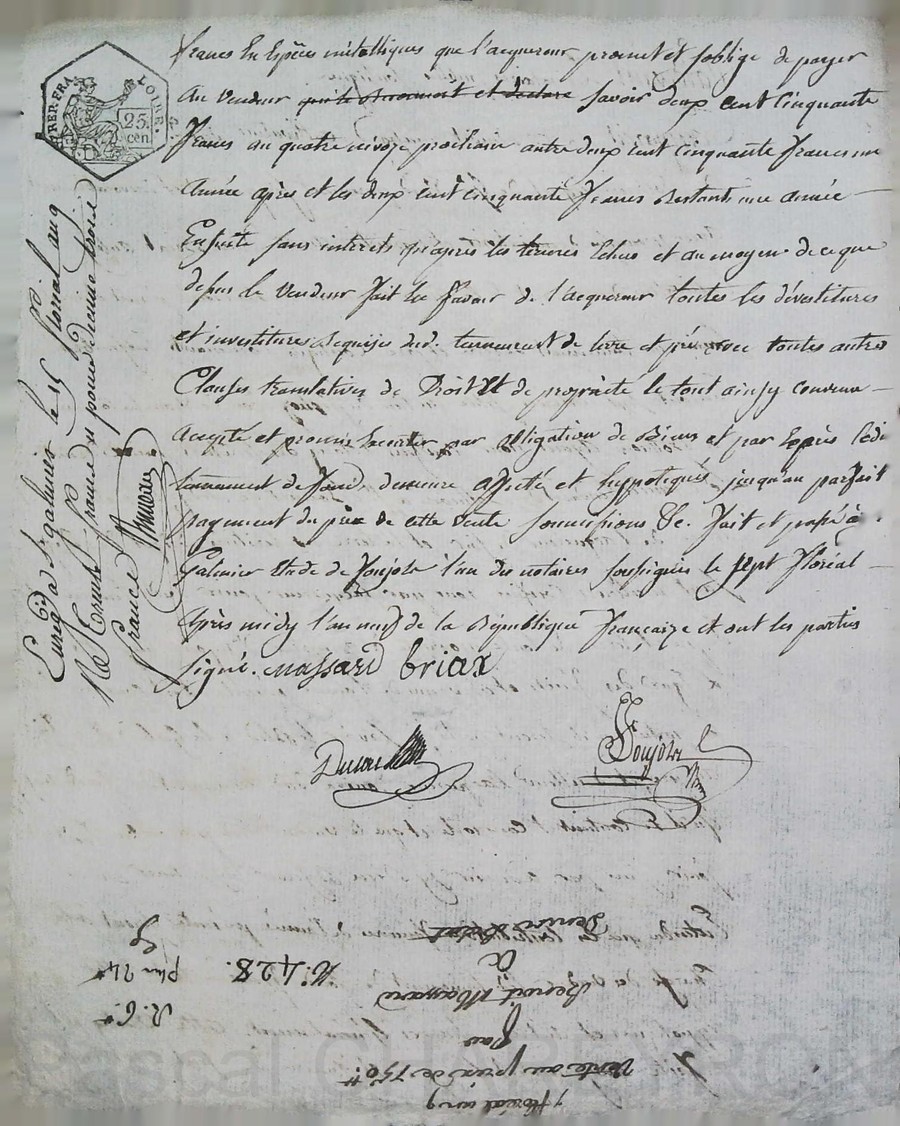 REP. FRA.
LOIRE.
25.
cen.
francs En Espèces métalliques que l'acquereur promet et s'oblige de payer
Au Vendeur savoir deux cent Cinquante
francs au quatre nivoze prochain autre deux cent cinquante francs une
Année après et les deux cent cinquante francs Restants une année
Ensuite sans interets qu'après les termes Echus et au moyen de ce que
depus le Vendeur fait En faveur de l'acquereur toutes les dévestitures
et investitures Requises dud. tennement de terre et pré avec toutes autres
Clauses translatives de Droit Et de propriété le tout ainsy convenu
Accepté et promis Executer par obligation de Biens et par Exprès ledi
tennement de fond demeure affecté et hypotequés jusqu'au parfait
payement du prix de cette vente soumissions &c. fait et passé à
Galmier Etude de Poujola l'un des notaires soussignés le sept floréal
Après midy l'an neuf de la République française et ont les parties
signé. massard briax
Poujola
Enrg. à St. galmier le 15 floréal an 9
Re Trente francs pour decime trois
francs
7 floreal an 9
Vente au prix de 750 tt
Par
Benoit Massard
a
N. 428.
R. 6.